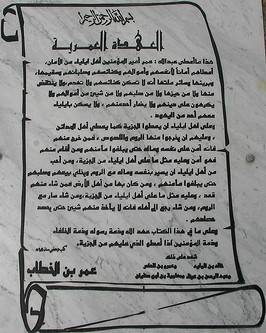 بسم الله الرحمن الرحيم
العهدة العمرية
هذا ما أعطى عبد الله: عمر أمير المؤمنين أهل ايلياء من الأمان،
أعطاهم أماناً لأنفسهم وأموالهم وكنائسهم وصلبانهم وسقيمها،
وبريئها وسائر ملتها أنه لا تسكن كنائسهم ولا تهدم ولا ينتقص
منها ولا من حيزها ولا من صليبهم ولا من شيء من أموالهم ولا
يكرهون على دينهم ولا يضار أحدمنهم ، ولا يسكن بايلياء
معهم أحد من اليهود .
وعلى أهل ايلياء أن يعطوا الجزية كما يعطي أهل المدائن
، وعليهم أن يخرجوا منها الروم واللصوص ، فمن خرج منهم
فإنه آمن على نفسه وماله حتى يبلغوا مأمنهم ومن أقام منهم
فهو آمن وعليه مثل ما على أهل ايلياء من الجزية، ومن أحب
من أهل ايلياء أن يسير بنفسه وماله مع الروم ويخلي بيعهم وصلبهم
حتى يبلغوا مأمنهم ، ومن كان بها من أهل الأرض فمن شاء منهم
قعد ، وعليه مثل ما على أهل ايلياء من الجزية، ومن شاء سار مع
الروم، ومن شاء رجع إلى أهله فإنه لا يأخذ منهم شيئ حتى يحصد
حصادهم .
وعلى ما في هذا الكتاب عهد الله وذمة رسوله وذمة الخلفاء
وذمة المؤمنين اذا أعطوا الذي عليهم من الجزية.
شهد على ذلك
خالد بن الوليد وعمرو بن العاص
وعبد الرحمن بن عوف ومعاوية بن أبي سفيان
عمر بن الخطاب